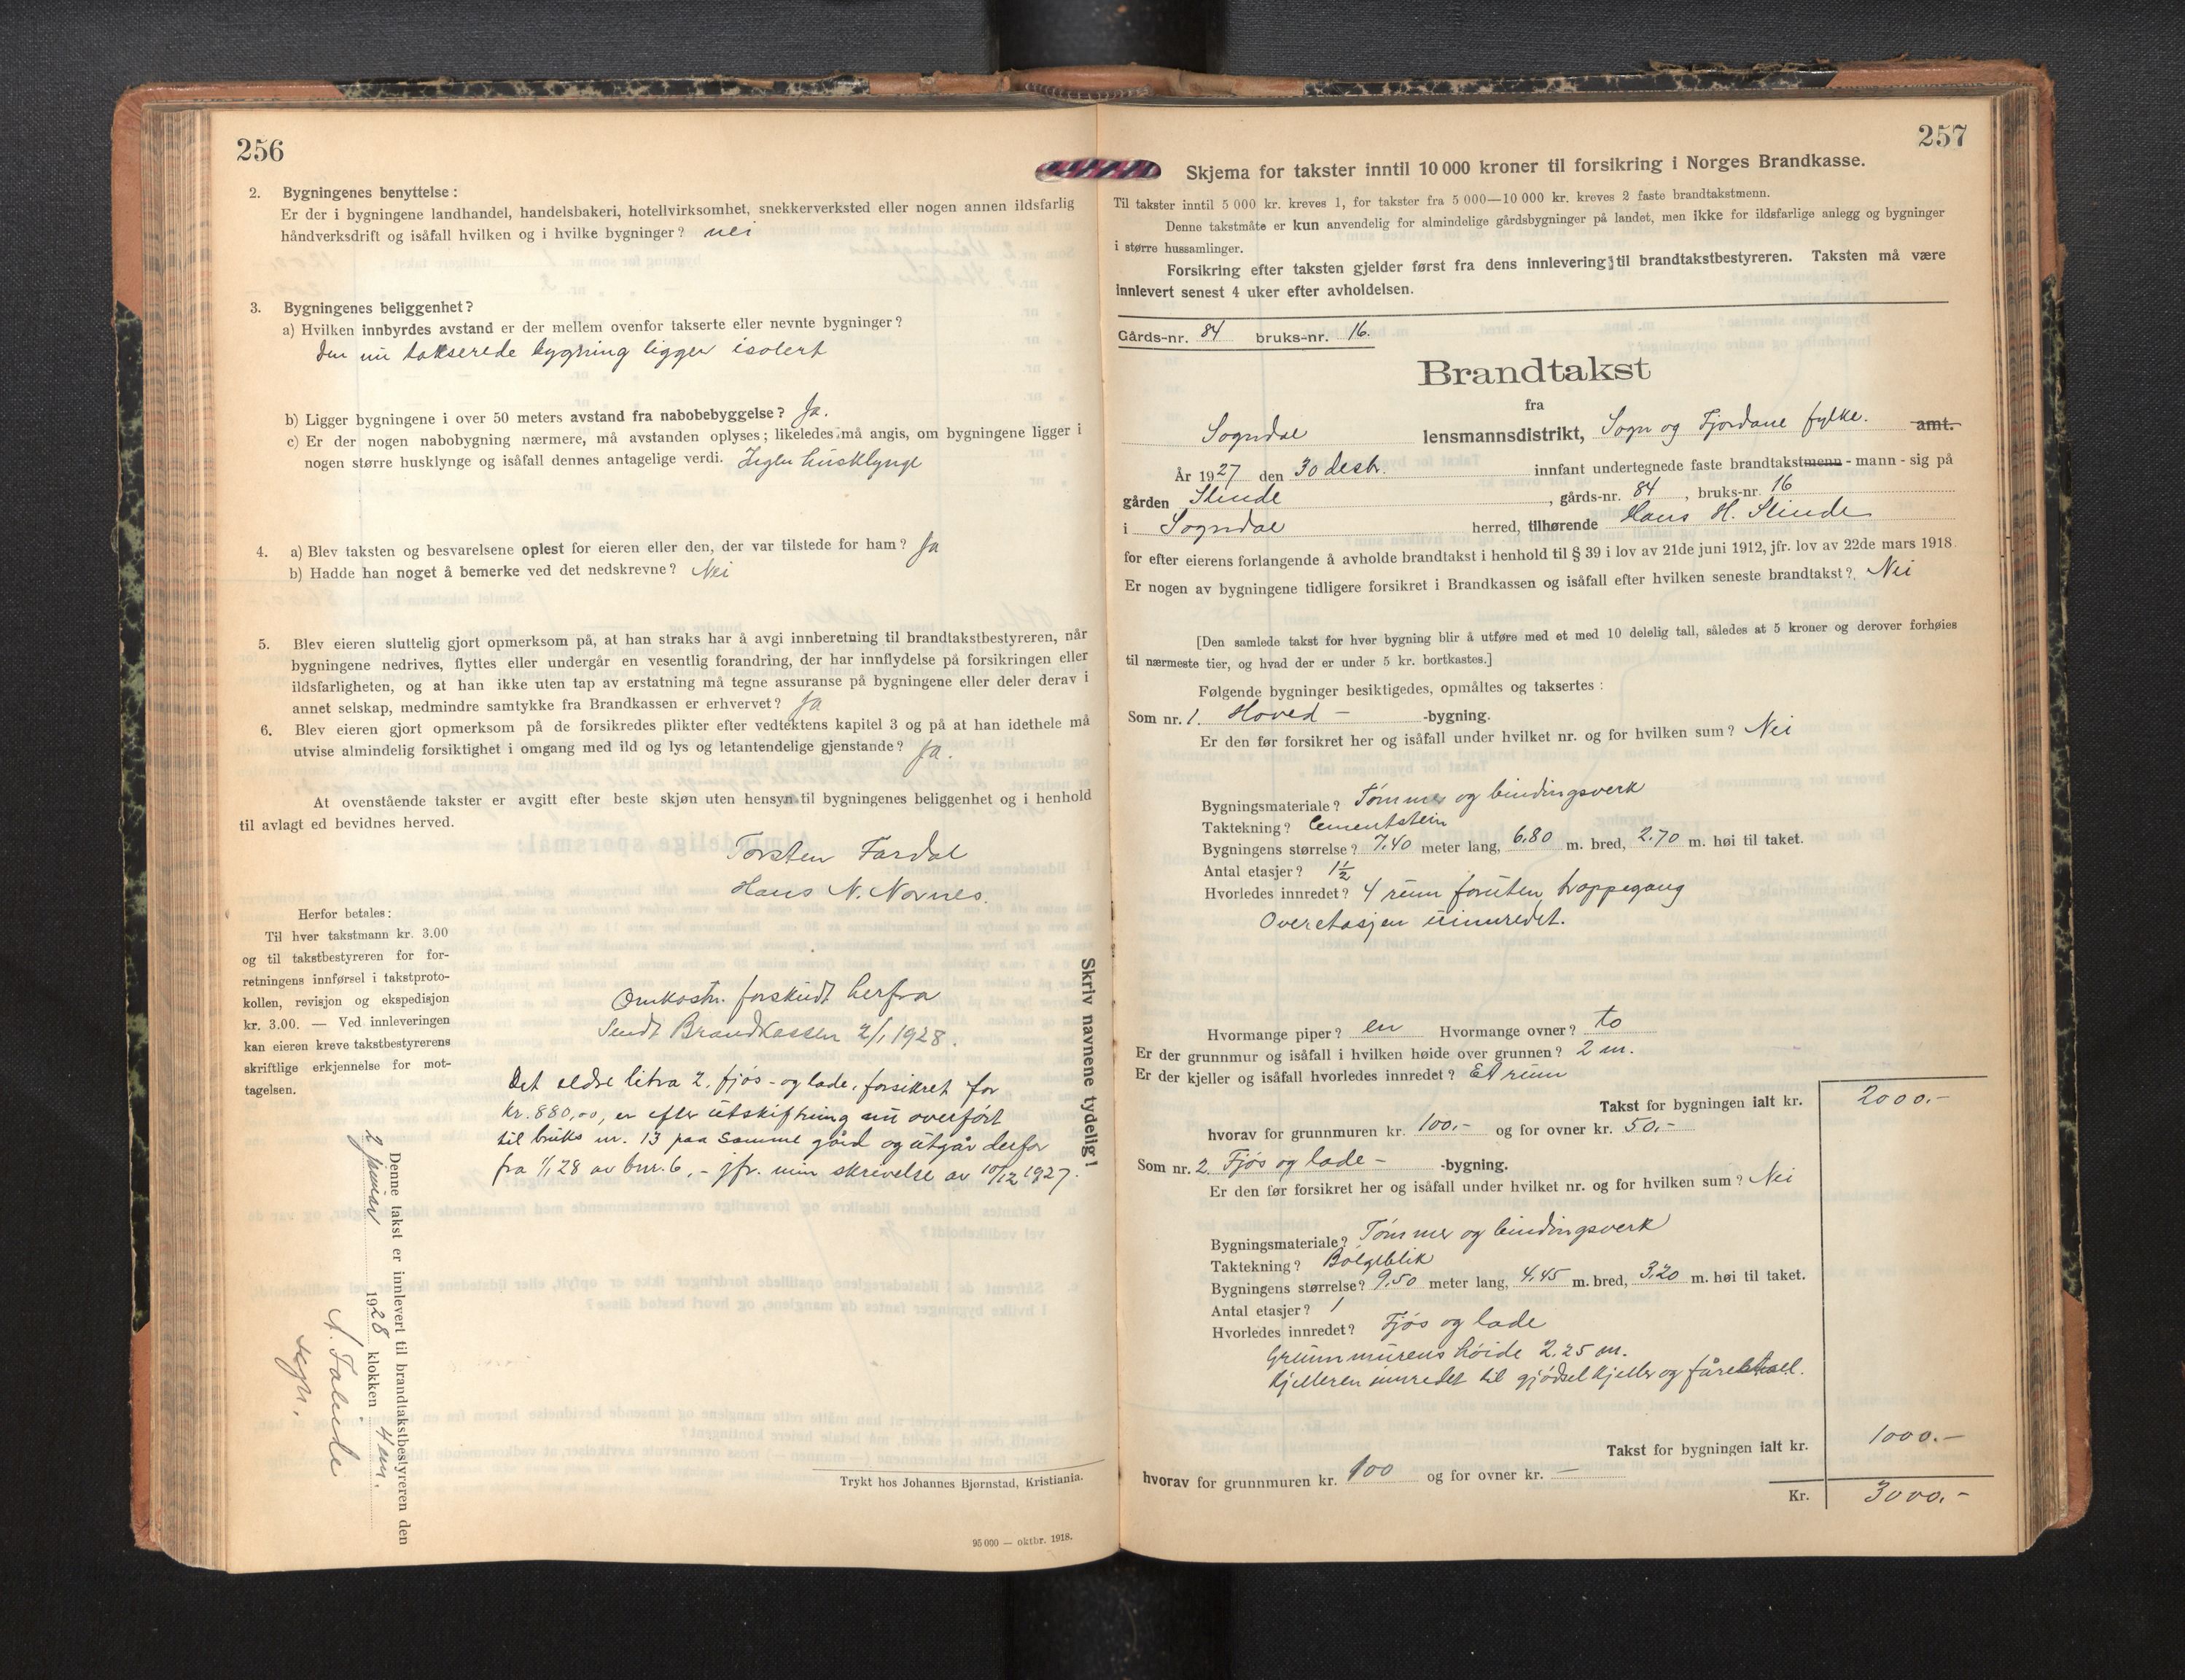 256
2. Bygningenes benyttelse:
Er der i bygningene landhandel, handelsbakeri, hotellvirksomhet, snekkerverksted eller nogen annen ildsfarlig
håndverksdrift og isåfall hvilken og i hvilke bygninger? nei
3. Bygningenes beliggenhet?
a) Hvilken innbyrdes avstand er der mellem ovenfor takserte eller nevnte bygninger?
Den nu takserede bygning ligger isolert
b) Ligger bygningene i over 50 meters avstand fra nabobebyggelse? Ja.
c) Er der nogen nabobygning nærmere, må avstanden oplyses; likeledes må angis, om bygningene ligger i
nogen større husklynge og isåfall dennes antagelige verdi. Ingen husklynge
4. a) Blev taksten og besvarelsene oplest for eieren eller den, der var tilstede for ham? Ja
b) Hadde han noget å bemerke ved det nedskrevne? Nei
5. Blev eieren sluttelig gjort opmerksom på, at han straks har å avgi innberetning til brandtakstbestyreren, når
bygningene nedrives, flyttes eller undergår en vesentlig forandring, der har innflydelse på forsikringen eller
ildsfarligheten, og at han ikke uten tap av erstatning må tegne assuranse på bygningene eller deler derav i
annet selskap, medmindre samtykke fra Brandkassen er erhvervet? Ja
6. Blev eieren gjort opmerksom på de forsikredes plikter efter vedtektens kapitel 3 og på at han idethele må
utvise almindelig forsiktighet i omgang med ild og lys og letantendelige gjenstande? Ja.
At ovenstående takster er avgitt efter beste skjøn uten hensyn til bygningenes beliggenhet og i henhold
til avlagt ed bevidnes herved.
Torsten Fardal
Hans N. Navnes.
Herfor betales:
Til hver takstmann kr. 3.00
og til takstbestyreren for for-
retningens innførsel i takstproto-
kollen, revisjon og ekspedisjon
kr. 3.00. — Ved innleveringen
kan eieren kreve takstbestyrerens
skriftlige erkjennelse for mot-
tagelsen.
Omkostn. forskudt herfra
Sendt Brandkassen 2/1 1928.
Det eldre litra 2. fjøs - og lade, forsikret for
kr. 880,00, er efter utskiftning nu overført
til bruks nr. 13 paa samme gård og utgår derfor
fra 1/1 28 av bnr. 6, - jfr. min skrivelse av 10/12 1927.
Skriv navnene tydelig!
Denne takst er innlevert til brandtakstbestyreren den
2 januar 1928 klokken 4 em.
N. Falinde
sogn.
Trykt hos Johannes Bjørnstad, Kristiania.
95 000 — oktbr. 1918.
257
Skjema for takster inntil 10 000 kroner til forsikring i Norges Brandkasse.
Til takster inntil 5 000 kr. kreves 1, for takster fra 5 000—10 000 kr. kreves 2 faste brandtakstmenn.
Denne takstmåte er kun anvendelig for almindelige gårdsbygninger på landet, men ikke for ildsfarlige anlegg og bygninger
i større hussamlinger.
Forsikring efter taksten gjelder først fra dens innlevering til brandtakstbestyreren. Taksten må være
innlevert senest 4 uker efter avholdelsen.
Gårds-nr. 84 bruks-nr. 16.
Brandtakst
fra
Sogndal lensmannsdistrikt, Sogn og Fjordane fylke. amt.
År 1927 den 30 desbr. innfant undertegnede faste brandtakstmenn - mann - sig på
gården Slinde, gårds-nr. 84, bruks-nr. 16
i Sogndal herred, tilhørende Hans H. Slinde
for efter eierens forlangende å avholde brandtakst i henhold til § 39 i lov av 21de juni 1912, jfr. lov av 22de mars 1918.
Er nogen av bygningene tidligere forsikret i Brandkassen og isåfall efter hvilken seneste brandtakst? Nei
[Den samlede takst for hver bygning blir å utføre med et med 10 delelig tall, således at 5 kroner og derover forhøies
til nærmeste tier, og hvad der er under 5 kr. bortkastes.]
Følgende bygninger besiktigedes, opmåltes og taksertes:
Som nr. 1. Hoved - -bygning.
Er den før forsikret her og isåfall under hvilket nr. og for hvilken sum? Nei
Bygningsmateriale? Tømmer og bindingsverk
Taktekning? Cementstein
Bygningens størrelse? 7.40 meter lang, 6.80 m. bred, 2.70 m. høi til taket.
Antal etasjer? 1½
Hvorledes innredet? 4 rum foruten trappegang
Overetasjen uinnredet.
Hvormange piper? en Hvormange ovner? to
Er der grunnmur og isåfall i hvilken høide over grunnen? 2 m.
Er der kjeller og isåfall hvorledes innredet? Et rum
Takst for bygningen ialt kr. 2000.-
hvorav for grunnmuren kr. 100.- og for ovner kr. 50.-
Som nr. 2. Fjøs og lade - -bygning.
Er den før forsikret her og isåfall under hvilket nr. og for hvilken sum? Nei
Bygningsmateriale? Tømmer og bindingsverk
Taktekning? Bølgeblik
Bygningens størrelse? 9.50 meter lang, 4.45 m. bred, 3.20 m. høi til taket.
Antal etasjer? 1
Hvorledes innredet? Fjøs og lade
Grunnmurens høide 2.25 m.
Kjelleren innredet til gjødselkjeller og fårestall.
Takst for bygningen ialt kr. 1000.-
hvorav for grunnmuren kr. 100 og for ovner kr. —
Kr. 3000.-